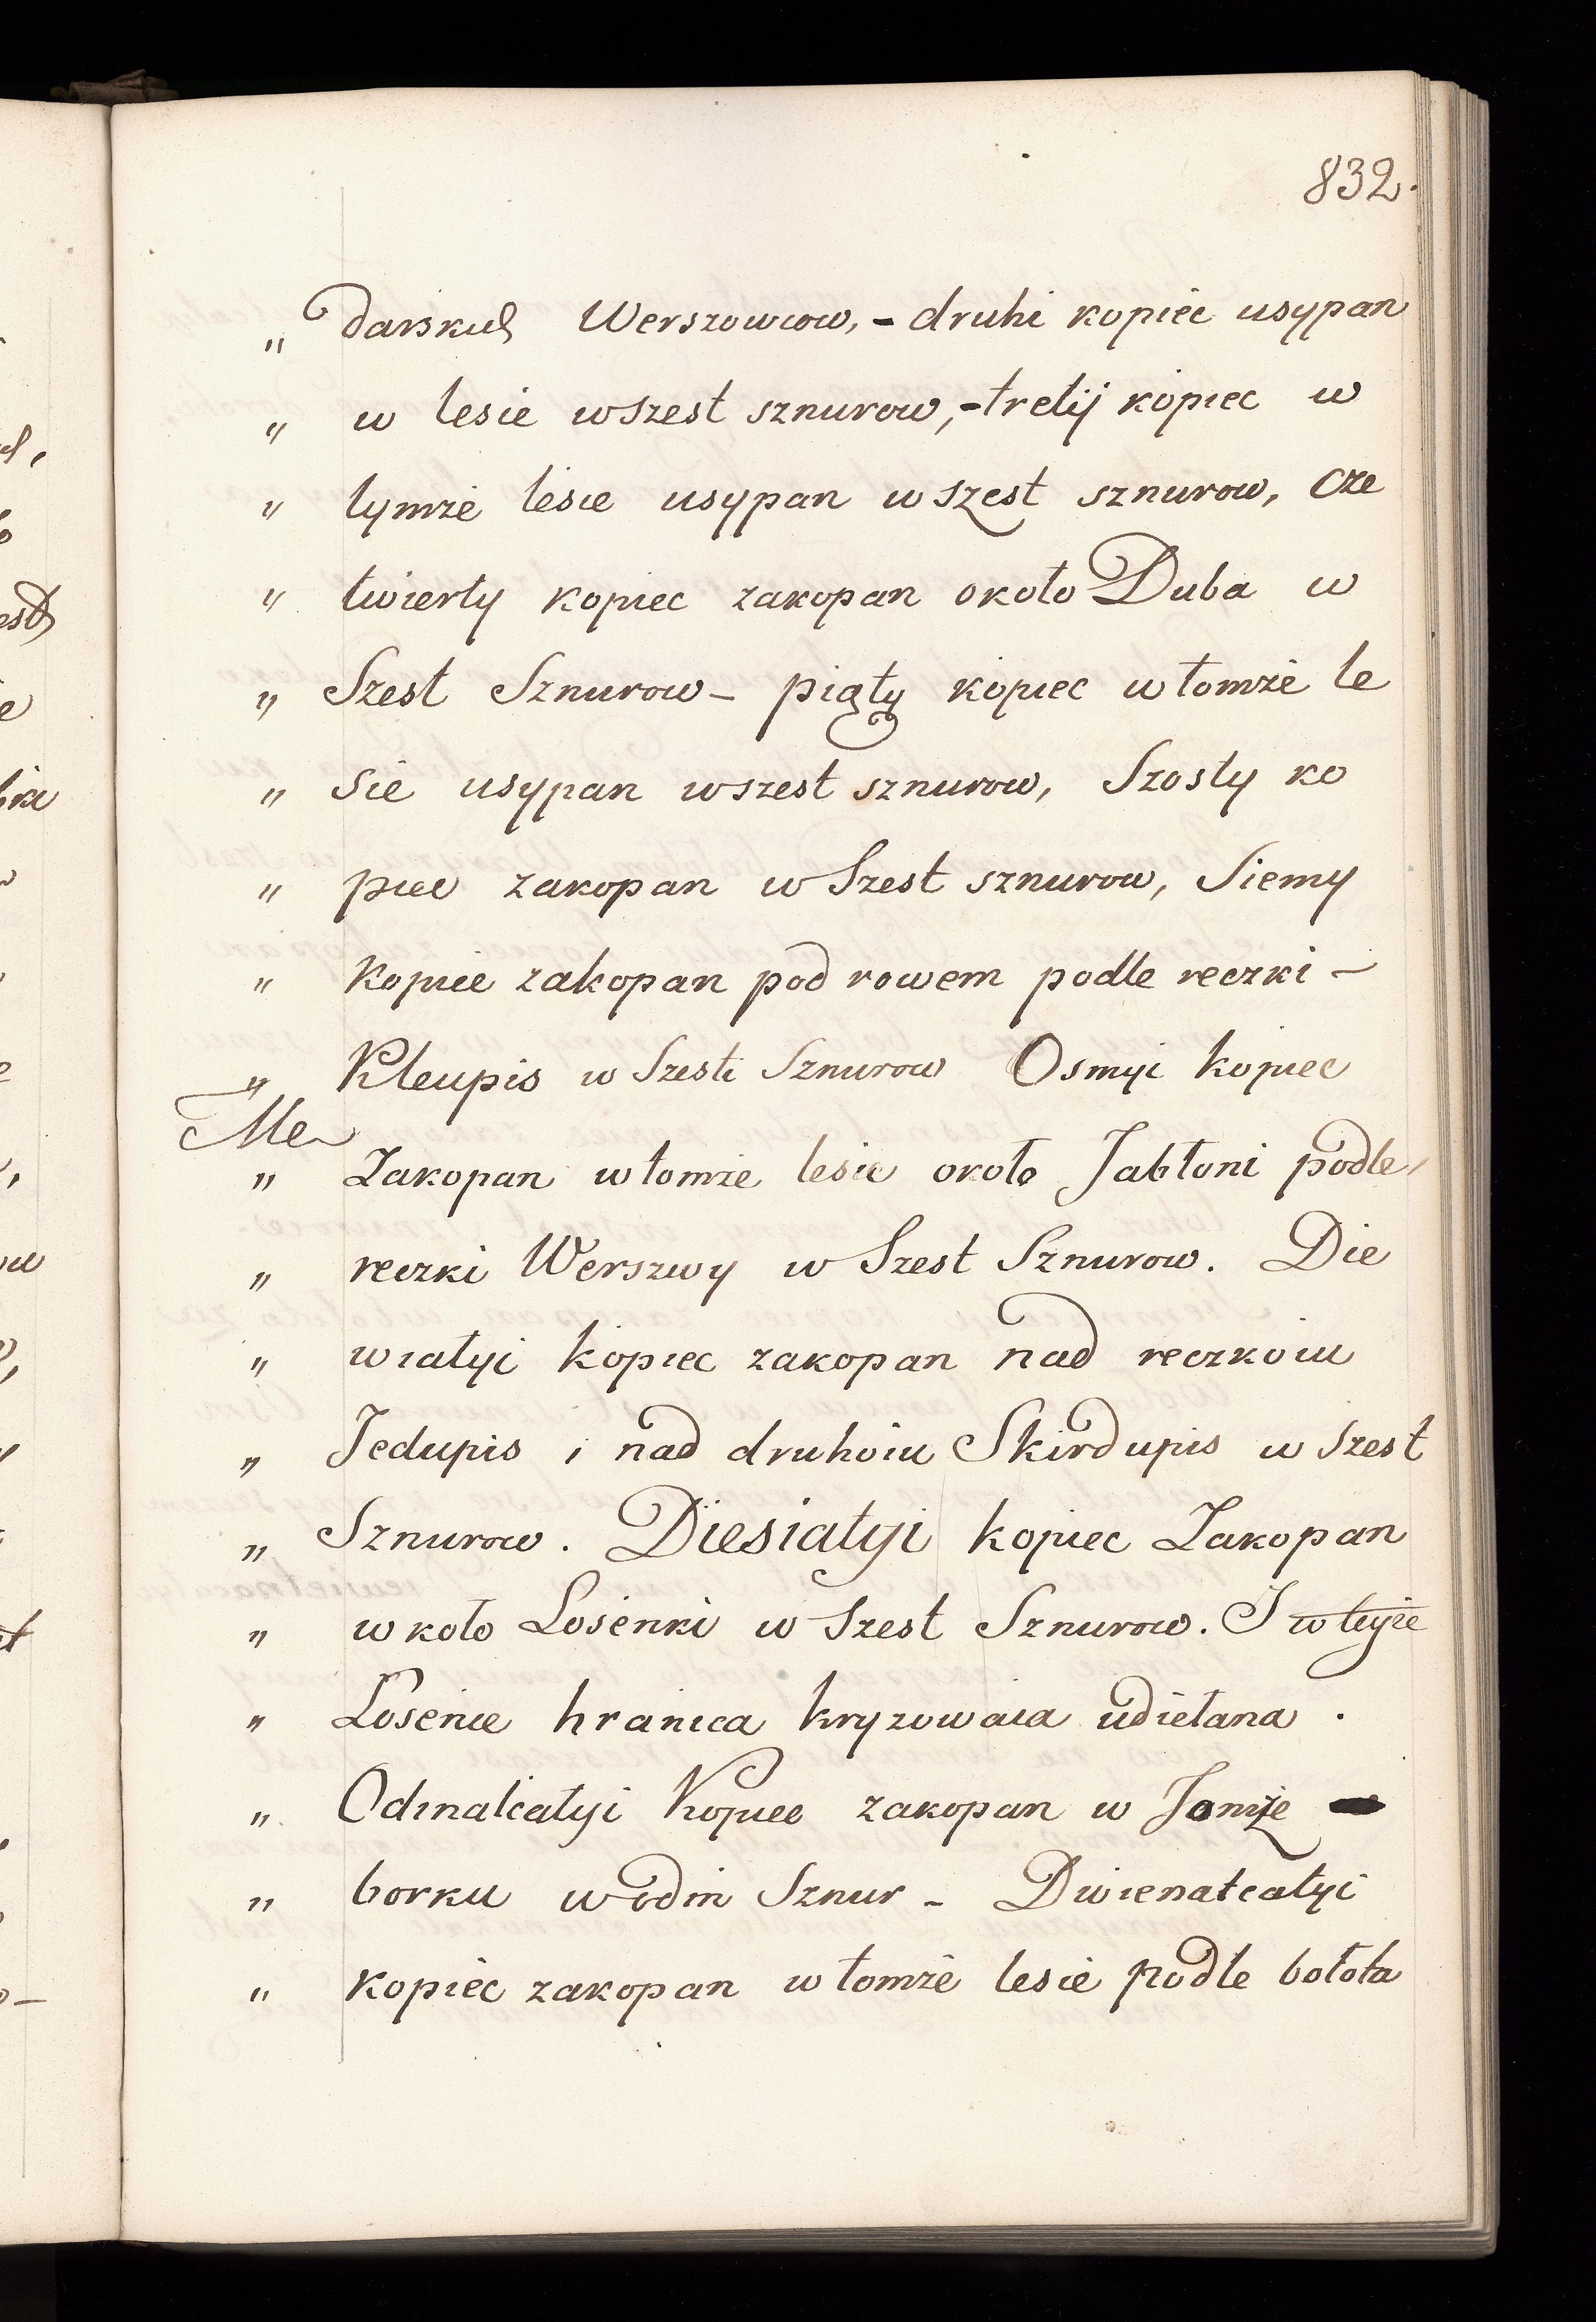 832.
„ darskich Werszowcow, - druhi kopiec usypan
„ w lesie w szest sznurow, - tretij kopiec w
„ tymże lesie usypan w szest sznurow, cze
„ twierty kopiec zakopan około Duba w
„ Szest Sznurow - piąty kopiec w tomże le
„ sie usypan w szest sznurow, Szosty ko
„ piec zakopan w Szest sznurow, Siemy
„ kopiec zakopan pod rowem podle reczki -
„ Kleupis w Szest Sznurow Osmyi kopiec
Me
„ Zakopan w tomże lesie około Jabłoni podle
„ reczki Werszwy w Szest Sznurow. Die
„ wiatyi kopiec zakopan nad reczkoiu
„ Jedupis i nad druhoiu Skirdupis w Szest
„ Sznurow. Diesiatyi kopiec Zakopan
„ w koło Losenki w Szest Sznurow. I w teyże
„ Losence hranica kryzowaia udiełana.
„ Odinatcatyi Kopiec zakopan w Tomże
„ borku w odin Sznur - Dwienatcatyi
„ kopiec zakopan w tomże lesie podle bołota